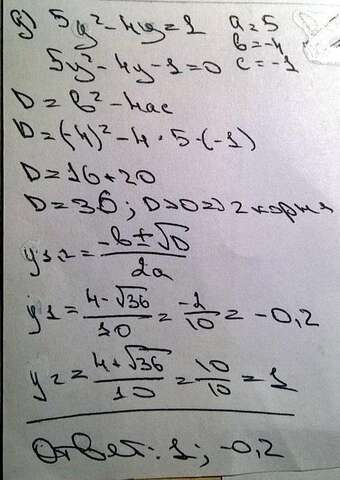 д) 5y² - 4y = 1 a = 5
5y² - 4y - 1 = 0 b = -4
c = -1
D = b² - 4ac
D = (-4)² - 4 · 5 · (-1)
D = 16 + 20
D = 36; D > 0 => 2 корня
y1,2 = (-b ± √D) / 2a
y1 = (4 - √36) / 10 = -2/10 = -0,2
y2 = (4 + √36) / 10 = 10/10 = 1
Ответ: 1; -0,2